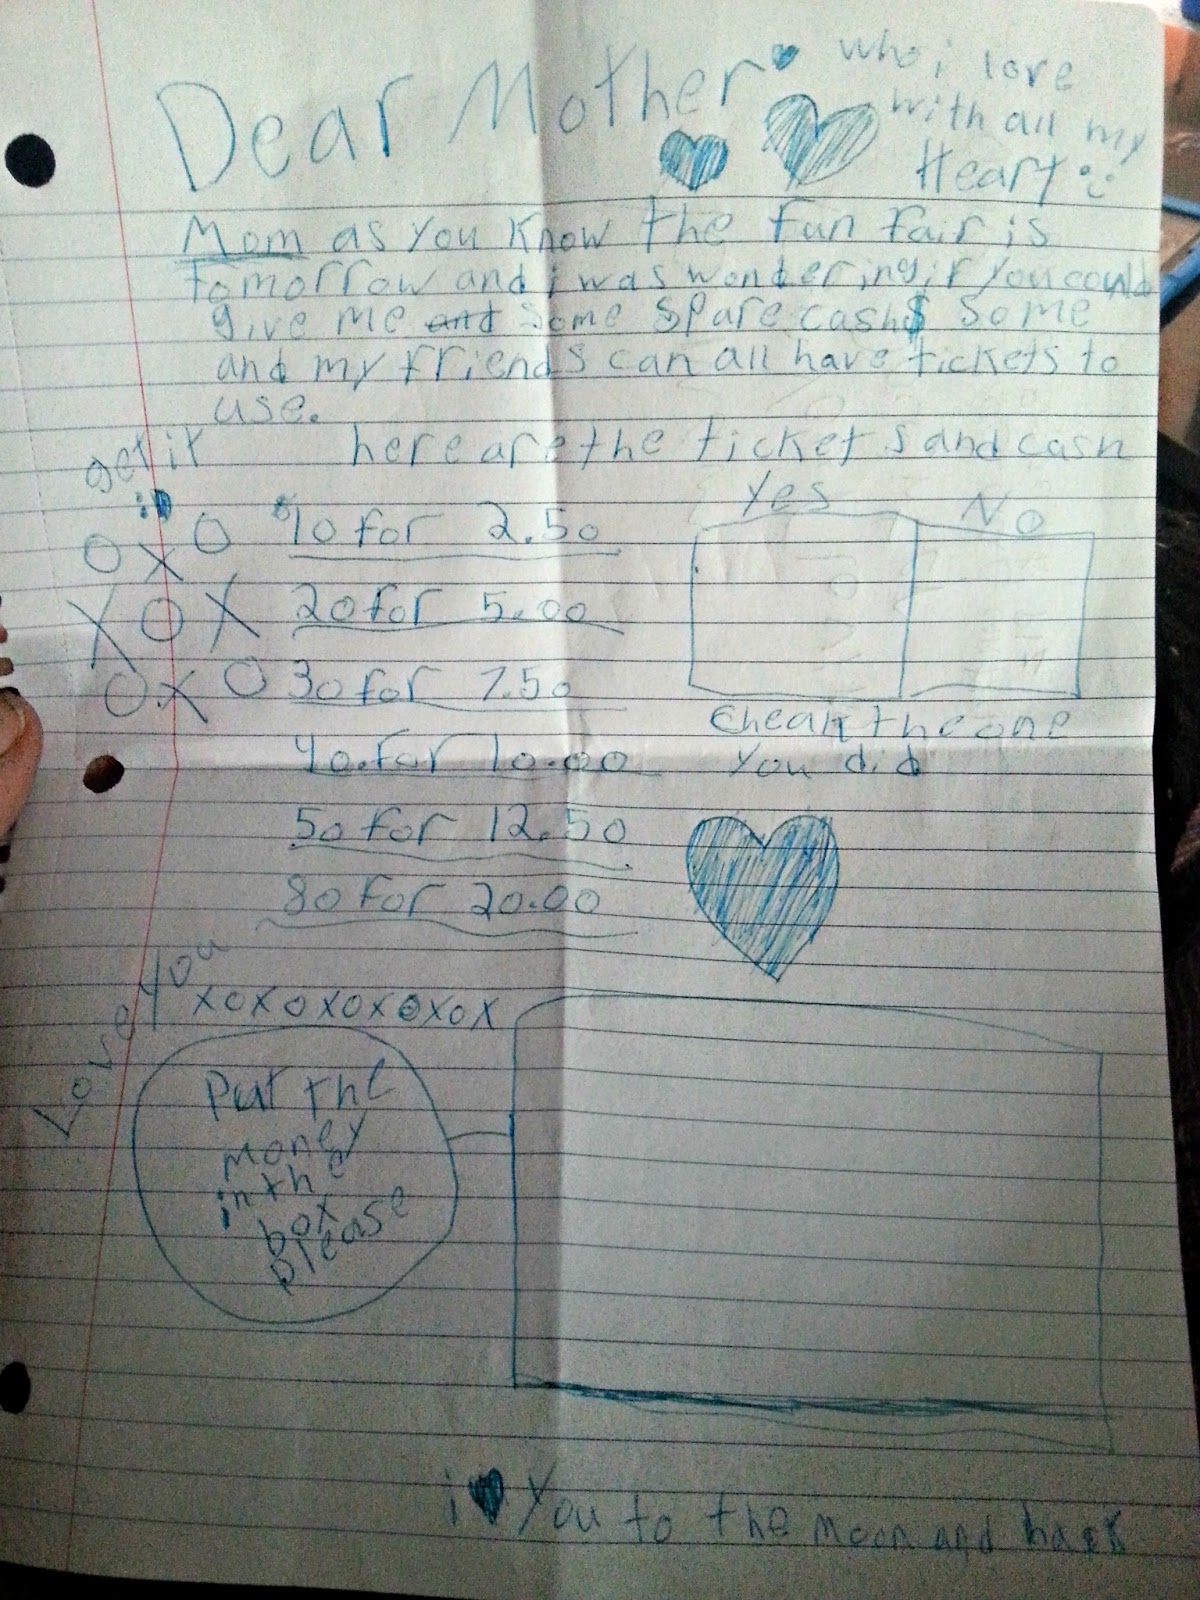 Dear Mother
who i love
with all my
Heart
Mom as you know the fun fair is
tomorrow and i was wondering if you could
give me and some spare cash$ some
and my friends can all have tickets to
use.
get it
:D
here are the tickets and cash
Yes
No
OXO
XOX
OXO
10 for 2.50
20 for 5.00
30 for 7.50
40.for 10.00
50 for 12.50
80 for 20.00
the one
you did
Love You
xoxoxoxoxox
Put the
money
in the
box
please
i ♥ You to the moon and back